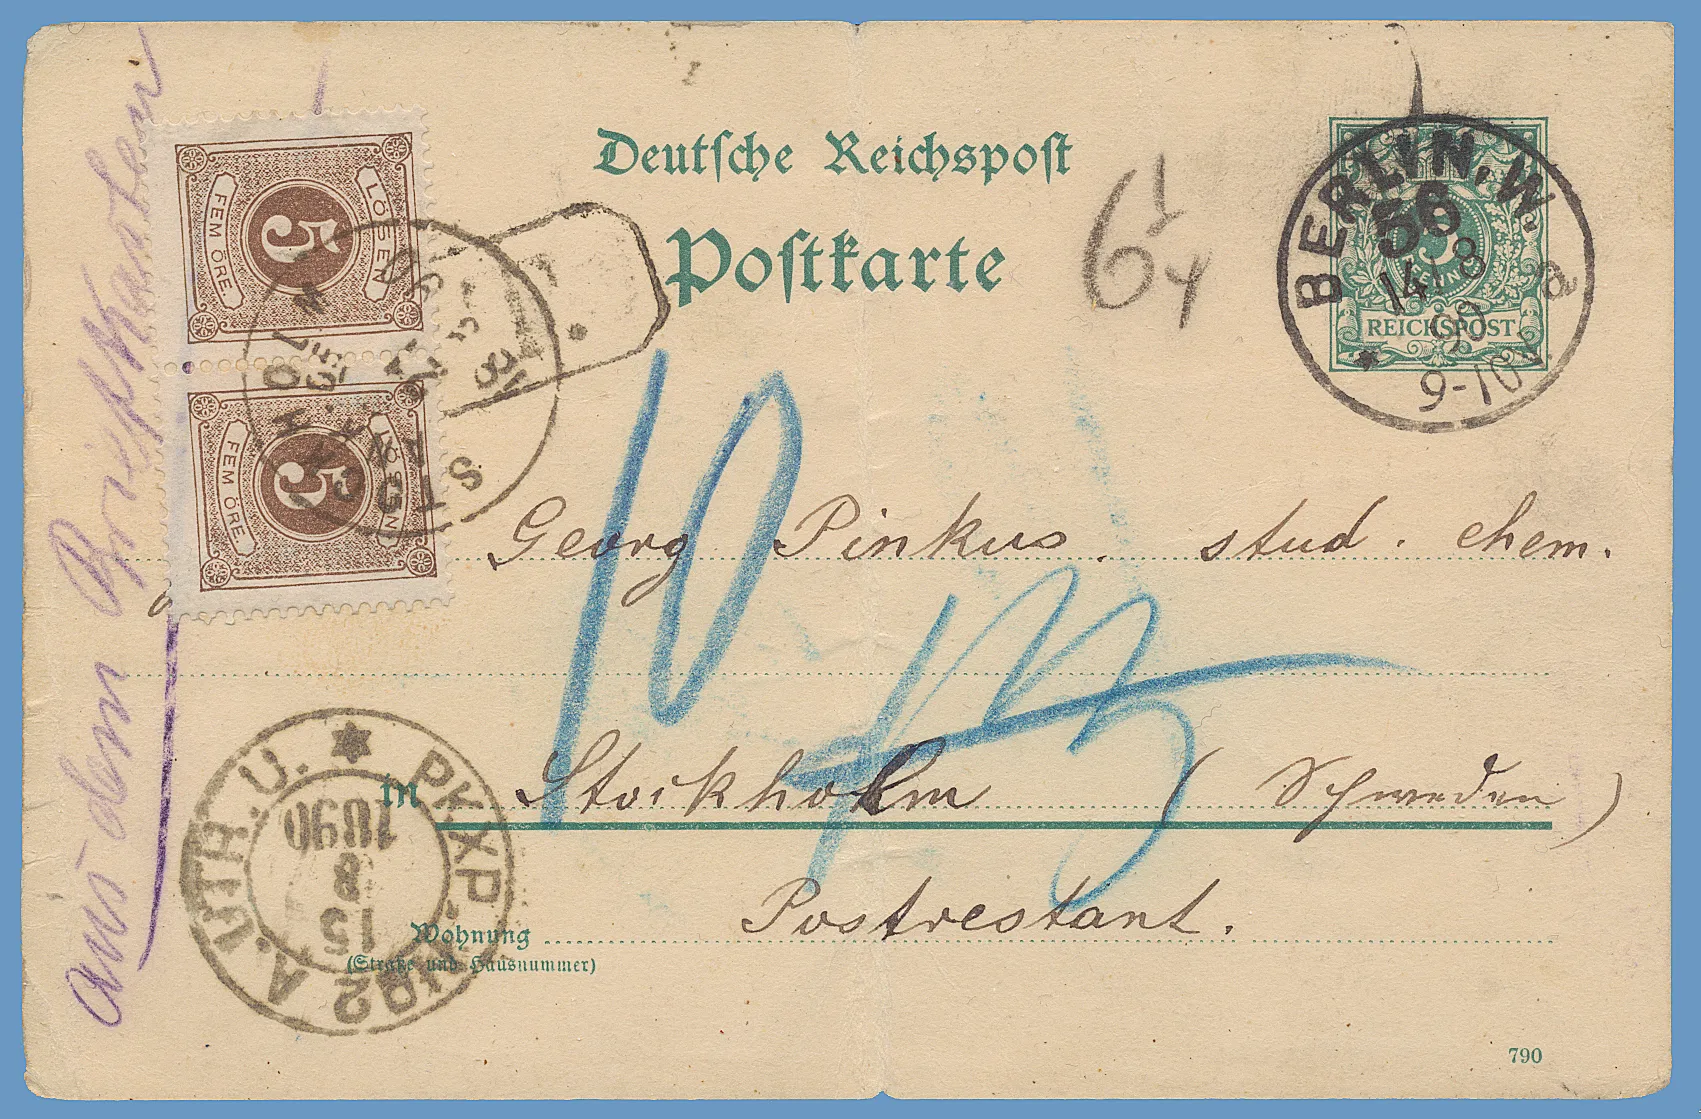 Deutsche Reichspost
Postkarte
6 1/4
BERLIN, W.
56
14 8
90
9-10 V.
a
5
PFENNIG
REICHSPOST
LÖSEN
5
FEM ÖRE.
LÖSEN
5
FEM ÖRE.
STOCKHOLM
aus dem Briefkasten
10
Georg Pinkus. stud. chem.
in Stockholm (Schweden)
Postrestant.
Wohnung
(Straße und Hausnummer)
PKXP. N:o 2 A. UTR. U.
15
8
1890
790